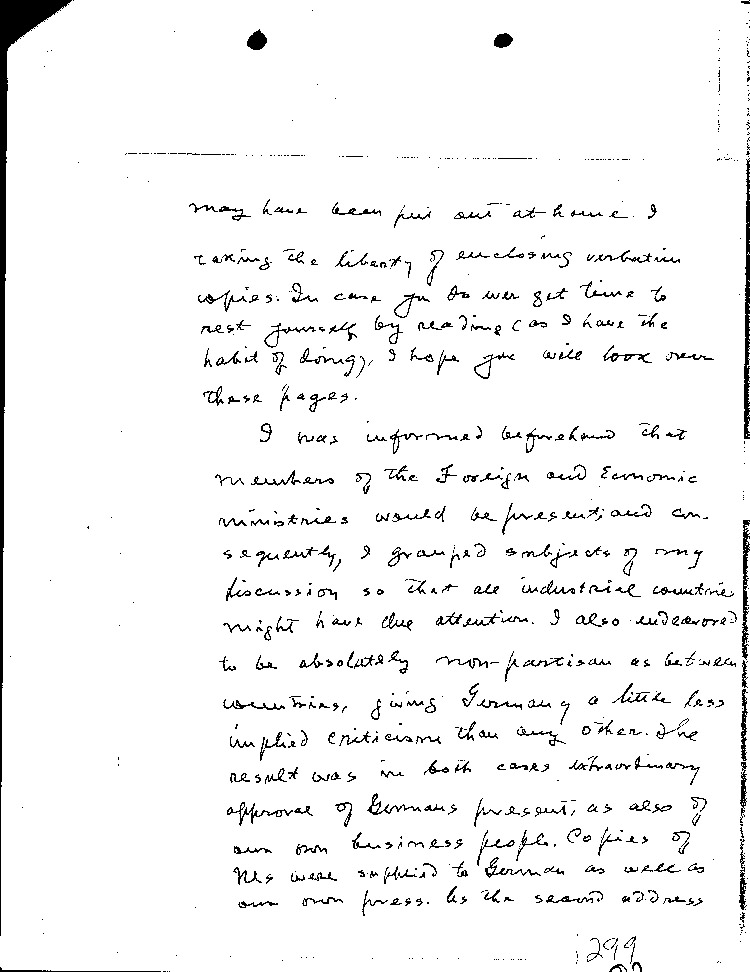 may have been put out at home. I
taking the liberty of enclosing verbatim
copies. In case you do ever get time to
rest yourself by reading (as I have the
habit of doing), I hope you will look over
these pages.
I was informed beforehand that
members of the Foreign and Economic
ministries would be present; and con-
sequently, I grouped subjects of my
discussion so that all industrial countrie
might have due attention. I also endeavored
to be absolutely non-partisan as between
countries, giving Germany a little less
implied criticism than any other. The
result was in both cases extraordinary
approval of Germans present, as also of
our own business people. Copies of
Mss were supplied to German as well as
our own press. As the second address
1299